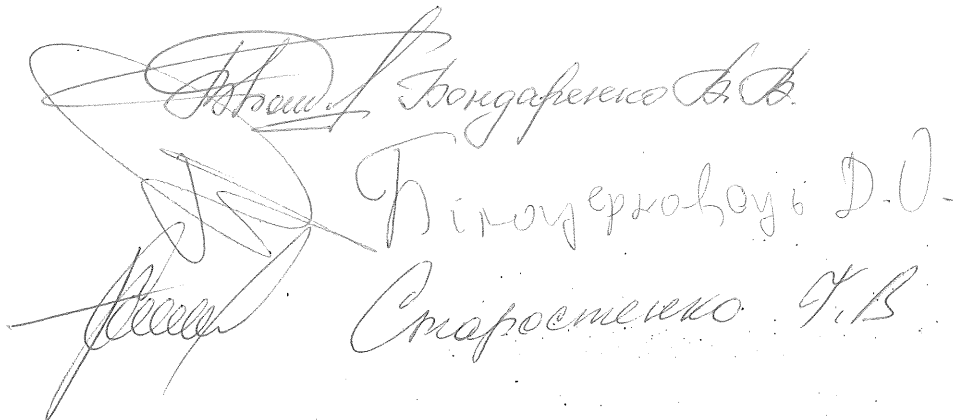 Бондаренко В. В.
Білоцерковець Д. О.
Старостенко Г. В